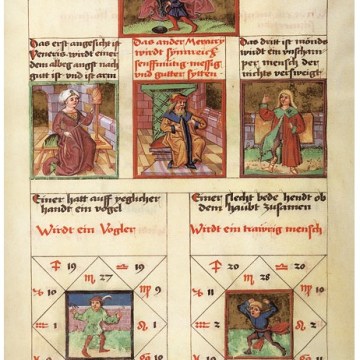 Das erst angesicht ist
Veneris wirdt einer
dem albeg angst nach
gutt ist und ist arm
Das ander Mercury
wirdt synnreich
senfftmutig messig
und gutter sytten
Das dritt ist monds
wirdt ein unscham
per mensch der
nichts versweigt
Einer hatt auff yeglicher
handt ein vogel
Wirdt ein Vogler
Einer slecht bede hendt ob
dem haubt zusamen
Wirdt ein trawrig mensch
19 19
♏ 27
10 9
1 1
20 20
♏ 28
11 10
2 2